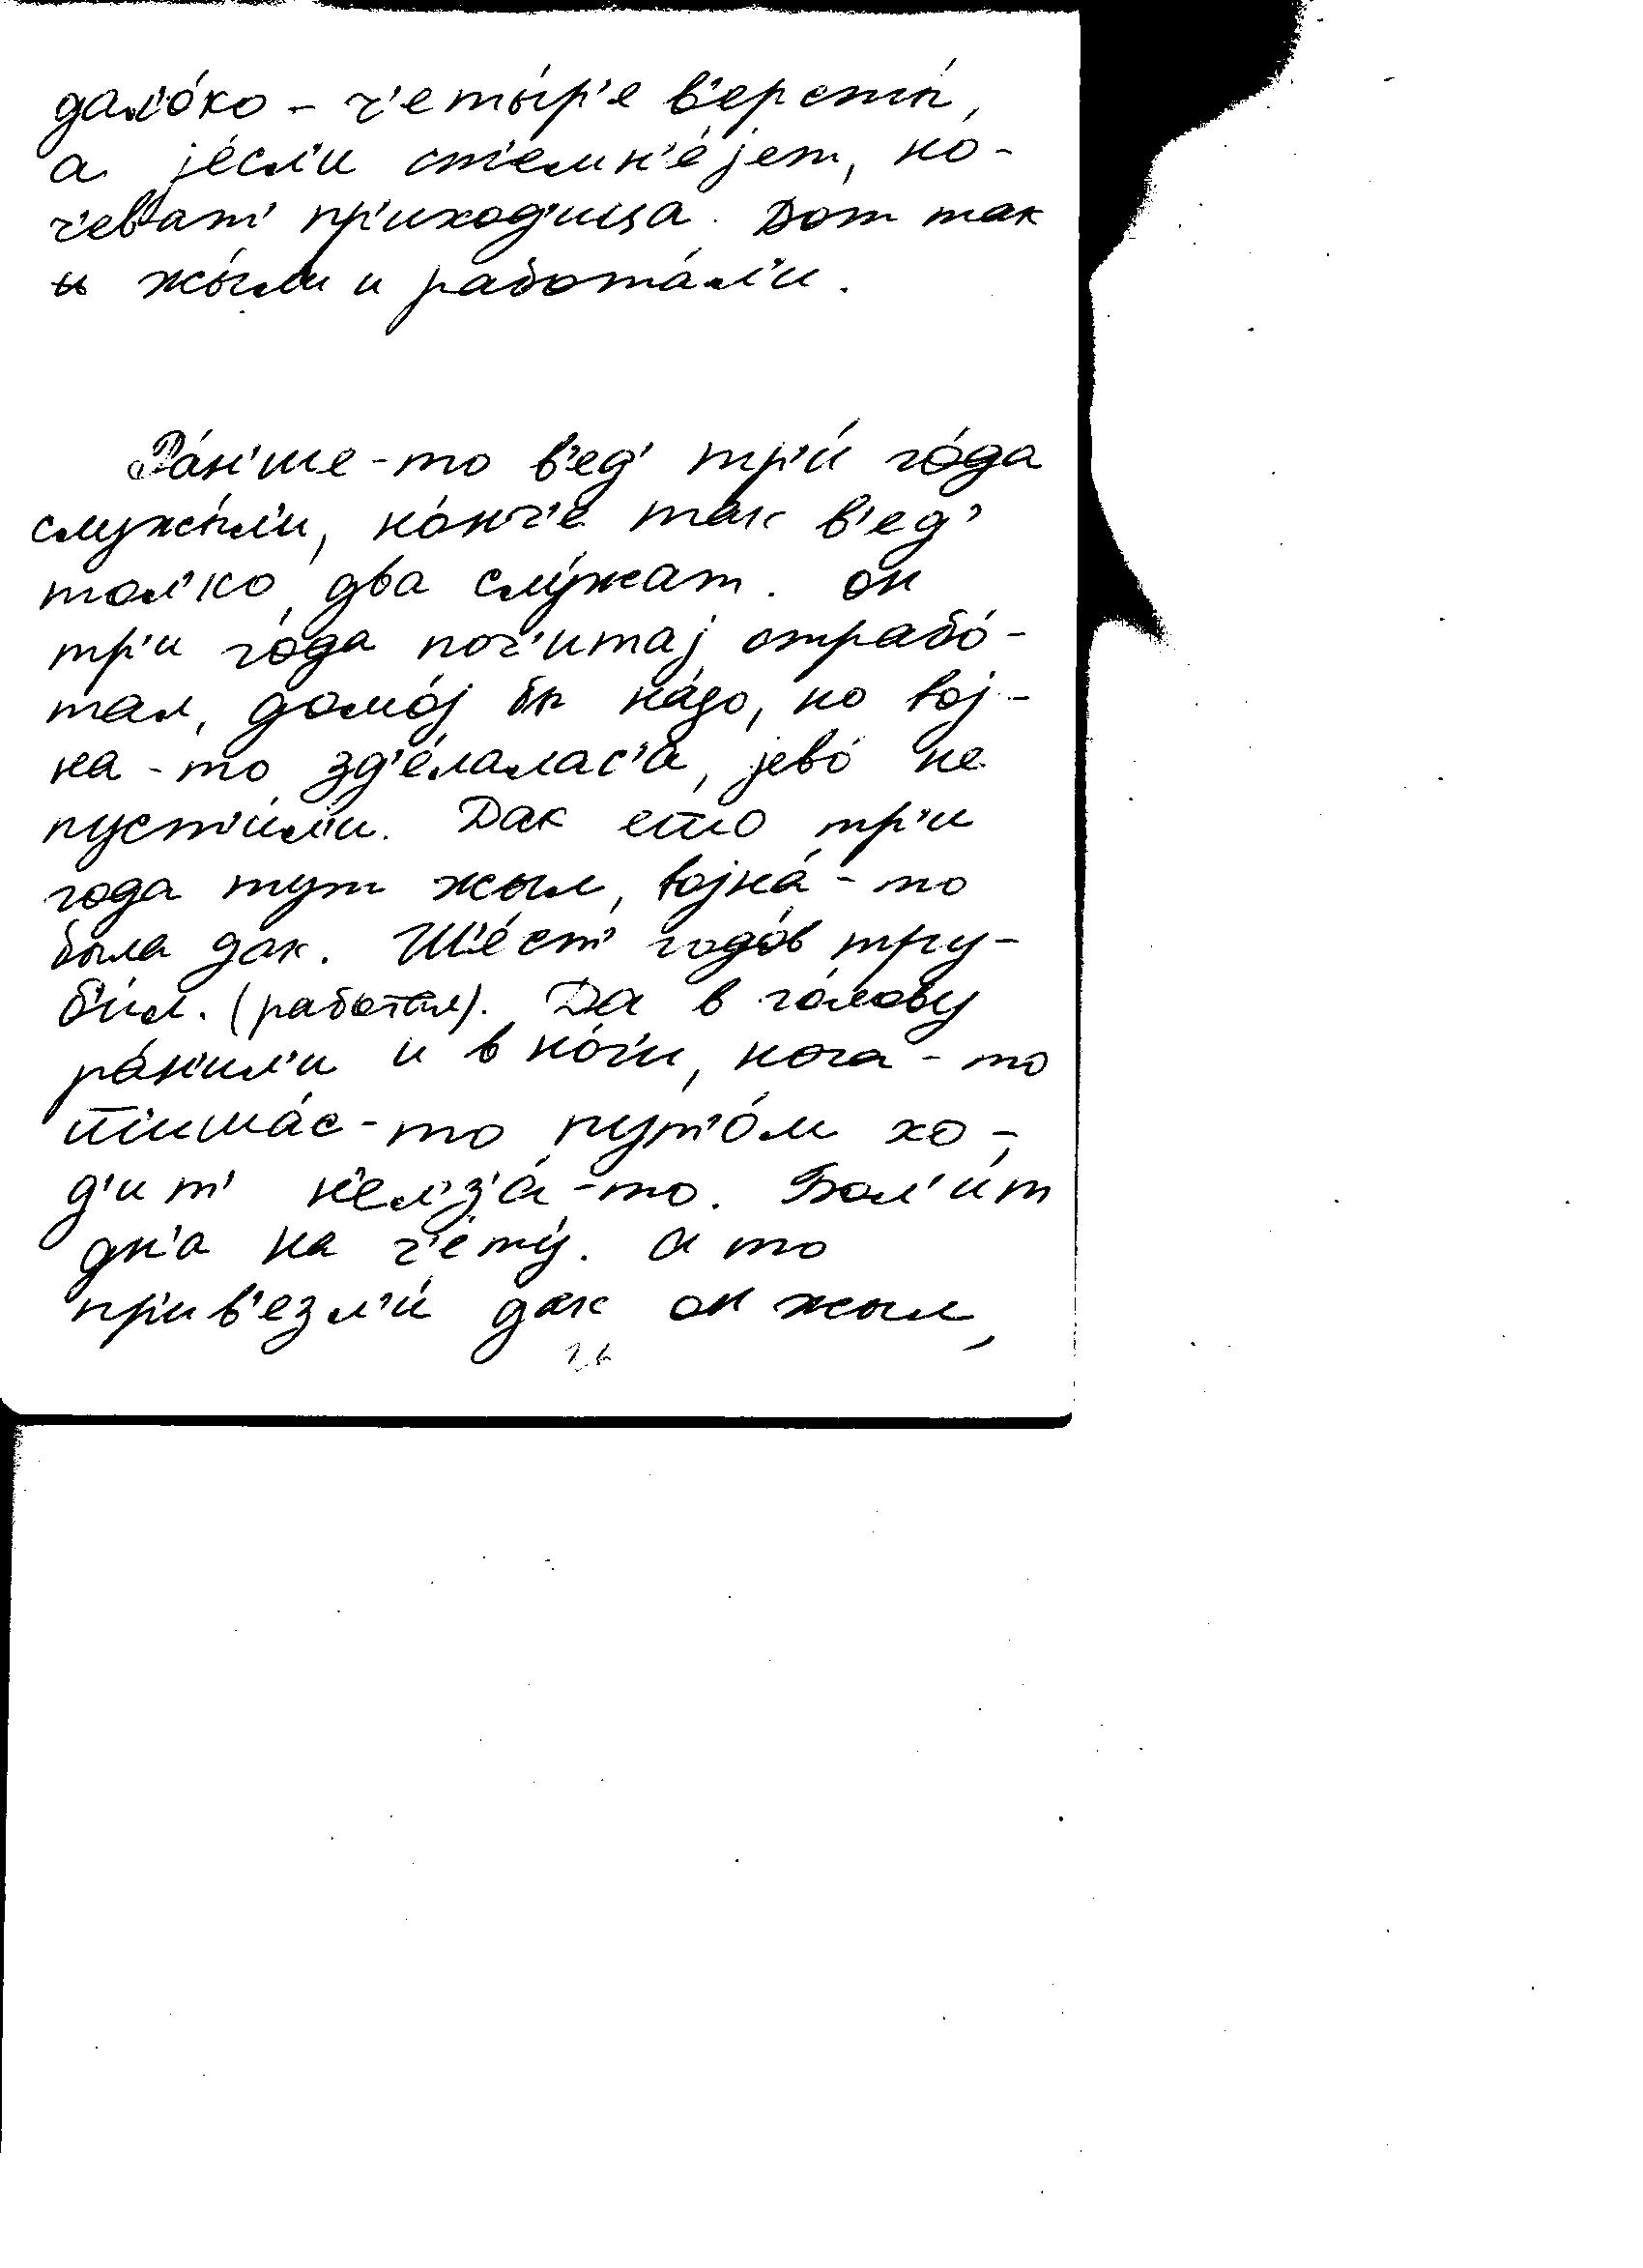 дал'о́ко – ч'еты́р'е в'ерсты́,
а је́сл'и ст'емн'е́јет, но-
ч'еват' пр'иход'ица. Вот так
и жы́л'и и работа́л'и.
Ра́н'ше-то в'ед' тр'и́ го́да
служы́л'и, но́нч'е так в'ед'
тол'ко два слу́жат. он
тр'и го́да поч'итај отрабо́-
тал, домо́ј бы на́до, но вој-
на-то зд'е́лалас'а, јево́ не
пуст'и́л'и. Дак ето тр'и
года тут жыл, војна́-то
была дак. Ш'е́ст' годо́в тру-
б'и́л. (работал). Да в го́лову
ра́н'ил'и и в но́г'и, нога-то
пут'о́м хо-
д'ит' н'ел'з'а́-то. Бол'и́т
дн'а на ч'ету́. а то
пр'ив'езл'и́ дак он жыл,
26